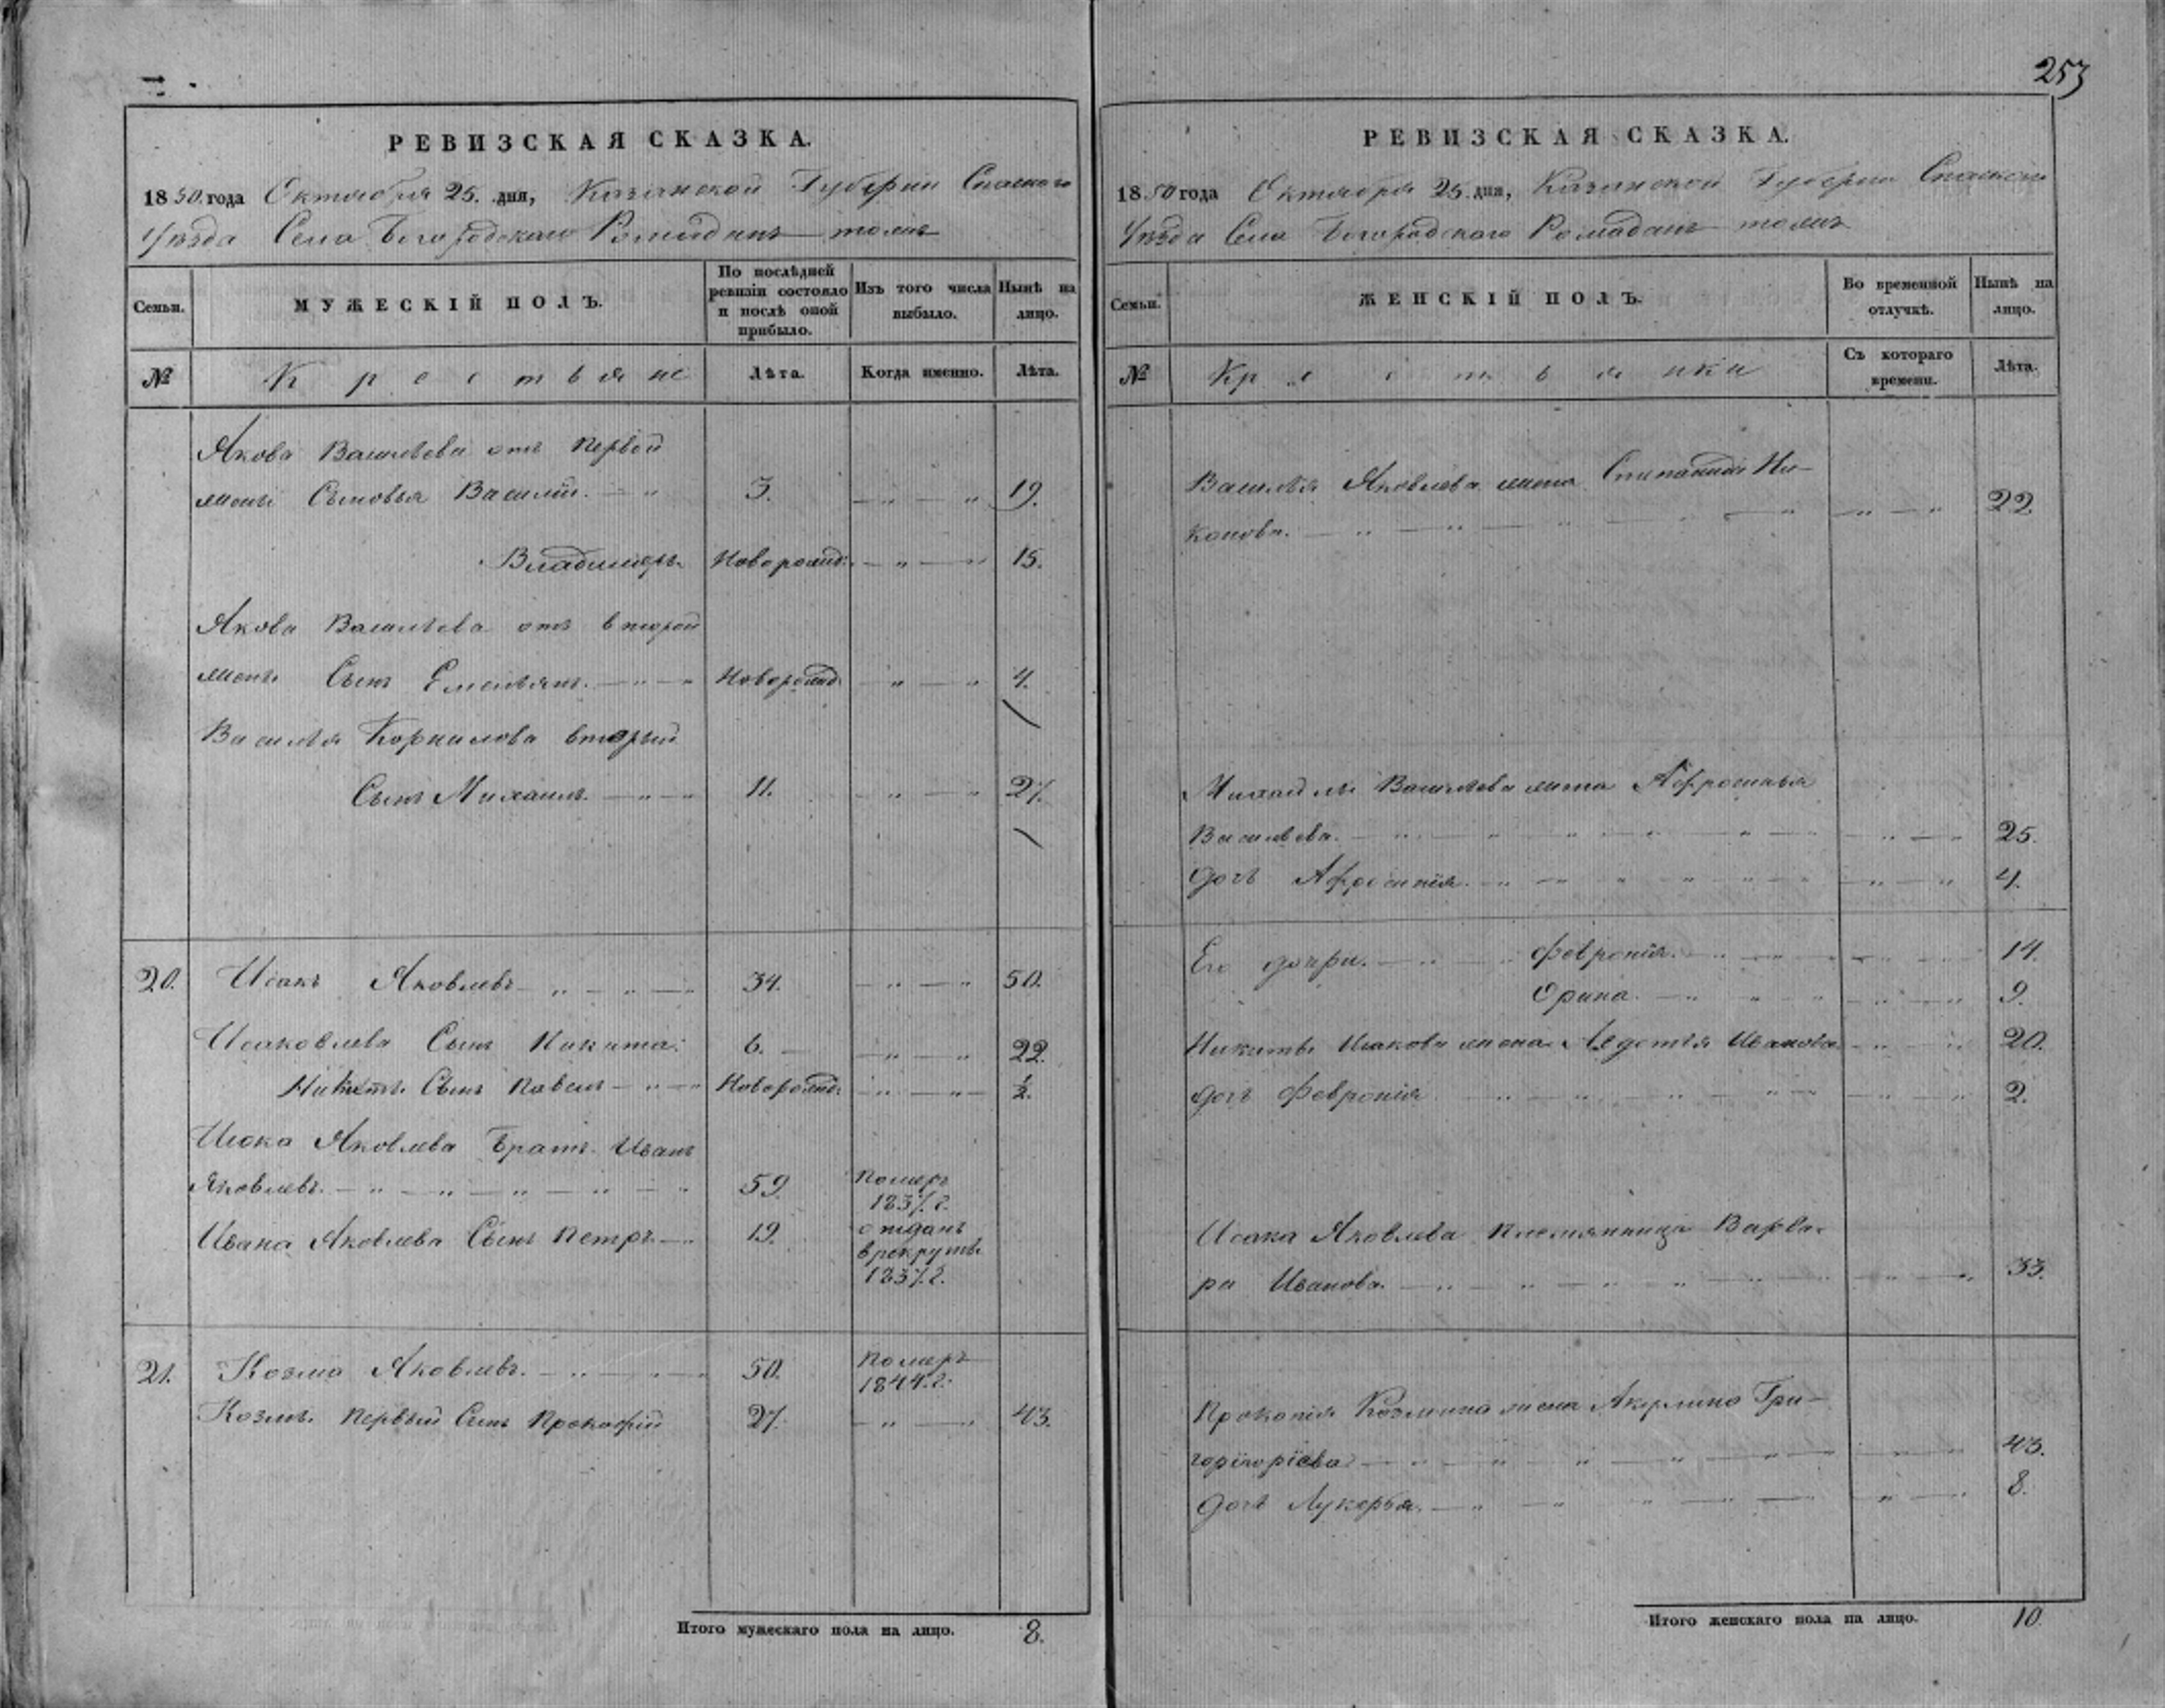 253
РЕВИЗСКАЯ СКАЗКА.
1850 года Октября 25. дня, Казанской Губерніи Спаскаго
Уѣзда Села Богородскаго Ромаданъ тожъ
Семьи. МУЖЕСКІЙ ПОЛЪ. По послѣдней ревизіи состояло и послѣ оной прибыло. Изъ того числа выбыло. Нынѣ на лицо.
№ Крестьяне Лѣта. Когда именно. Лѣта.
Якова Васильева отъ первой
жены Сыновья Василій. 3. 19.
Владимеръ. Новорожд: 15.
Якова Васильева отъ второй
жены Сынъ Емельянъ. Новорожд. 4.
Василья Корнилова вторый
Сынъ Михаилъ. 11. 27.
20. Исакъ Яковлевъ 34. 50.
Исаковлева Сынъ Никита. 6. 22.
Никиты Сынъ Павелъ Новорожд. ½.
Исака Яковлева Братъ Иванъ
Яковлевъ. 59. Померъ 1837. г.
Ивана Яковлева Сынъ Петръ 19. отданъ врекруты 1837. г.
21. Козма Яковлевъ. 50. Померъ 1844. г.
Козмы первый Сынъ Прокофій 27. 43.
Итого мужескаго пола на лицо. 8.
РЕВИЗСКАЯ СКАЗКА.
1850 года Октября 25. дня, Казанской Губерніи Спаскаго
Уѣзда Села Богородскаго Ромаданъ тожъ
Семьи. ЖЕНСКІЙ ПОЛЪ. Во временной отлучкѣ. Нынѣ на лицо.
№ Крестьянки Съ котораго времени. Лѣта.
Василья Яковлева жена Степанида Ни-
конова. 22.
Михайлы Васильева жена Афросинья
Васильева. 25.
Дочь Афросинія. 4.
Его дочери. Февронія. 14.
Орина. 9.
Никиты Исакова жена Авдотья Иванова 20.
дочь Февронія 2.
Исака Яковлева племянница Варва-
ра Иванова. 33.
Прокопія Козмина жена Акулина Гри-
горігоріева 43.
Дочь Лукерья. 8.
Итого женскаго пола на лицо. 10.